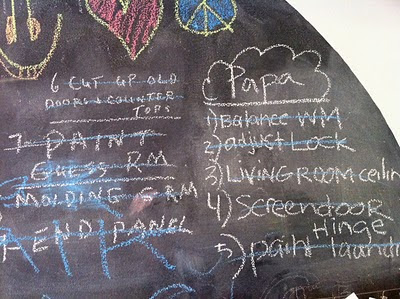 6 CUT UP OLD
DOORS & COUNTER
TOPS
7 PAINT
GUESS RM
MOLDING G RM
END PANEL
Papa
1) Balance WM
2) adjust LOCK
3) LIVING ROOM ceilin
4) Screendoor
Hinge
5) paint laundr